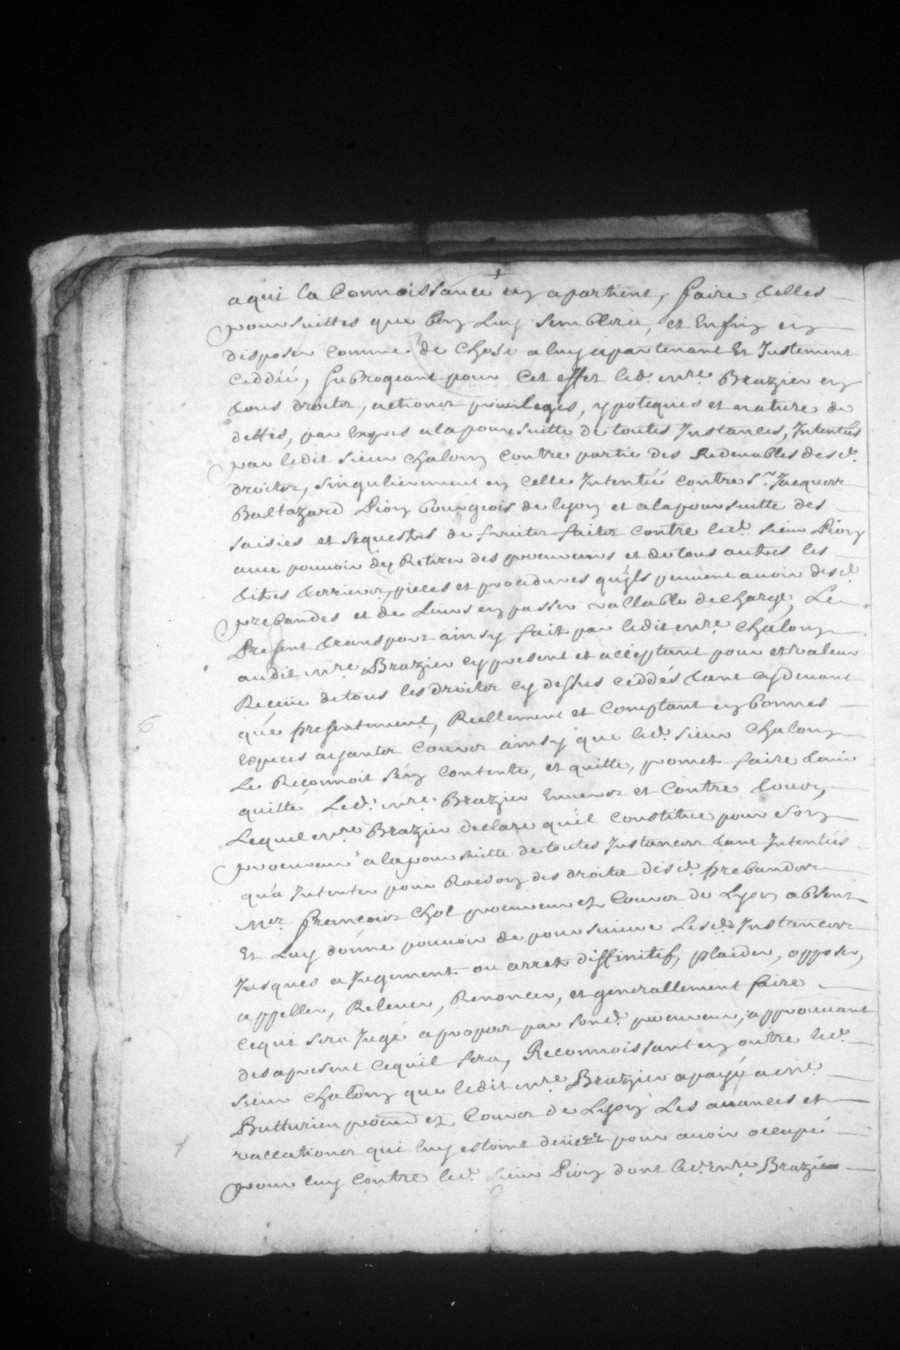 a qui la Connoissance en apartient, faire telles
poursuittes que bon luy semblera, et Enfin en
disposer comme de chose a luy apartenant Et Justement
ceddéé, subrogeant pour cet effet led. mre. Brazier en
tous droitz, actions privileges, ypoteques et nature de
dettes, par Expres a la poursuitte de toutes Instances, Intentéés
par ledit sieur chalon contre partie des Redevables desd.
droitz, singulierement en celle Intentéé contre sr. Jacques
Baltazard Pion bourgeois de lyon et a la poursuitte des
saisies et sequestres de fruits faitz contre led. sieur Pion
avec pouvoir de Retirer des procureurs et de tous autres les
titres terriers, pieces et procedures qu'ils peuvent avoir desd.
prebandes et de Leurs en passer vallable décharge, Le
Présent transport ainsy fait par ledit mre. chalon
audit mre. Brazier cy present et acceptant pour et valeur
Receue de tous les droitz cy dessus ceddés tant cy devant
que presentement, Réellement et Comptant en bonnes
especes ayantz Cours ainsy que led. sieur Chalon
Le Reconnoit s'en contente, et quitte, promet faire tenir
quitte Led. mre. Brazier Envers et Contre tous,
Lequel mre Brazier declare qu'il constitue pour son
procureur a la poursuitte de toutes Instances tant Intentéés
qu'a Intenter pour Raison des droitz desd. prebandes
Mer. francois Chol procureur ez Cours de Lyon absent
Et Luy donne pouvoir de poursuivre Lesd. Instances
Jusques a Jugement ou arret diffinitif, plaider, opposer,
appeller, Relever, Renoncer, et generallement faire
ce qui sera Jugé a propos par sond. procureur, approuvant
des a present ce qu'il fera, Reconnoissant en outre led.
sieur Chalon que ledit mre. Brazier a payé a mre.
Butturieu procur ez Cours de Lyon Les avances et
vaccations qui luy estoint deües pour avoir occupé
pour luy contre led. sieur Pion dont led. mre. Brazier